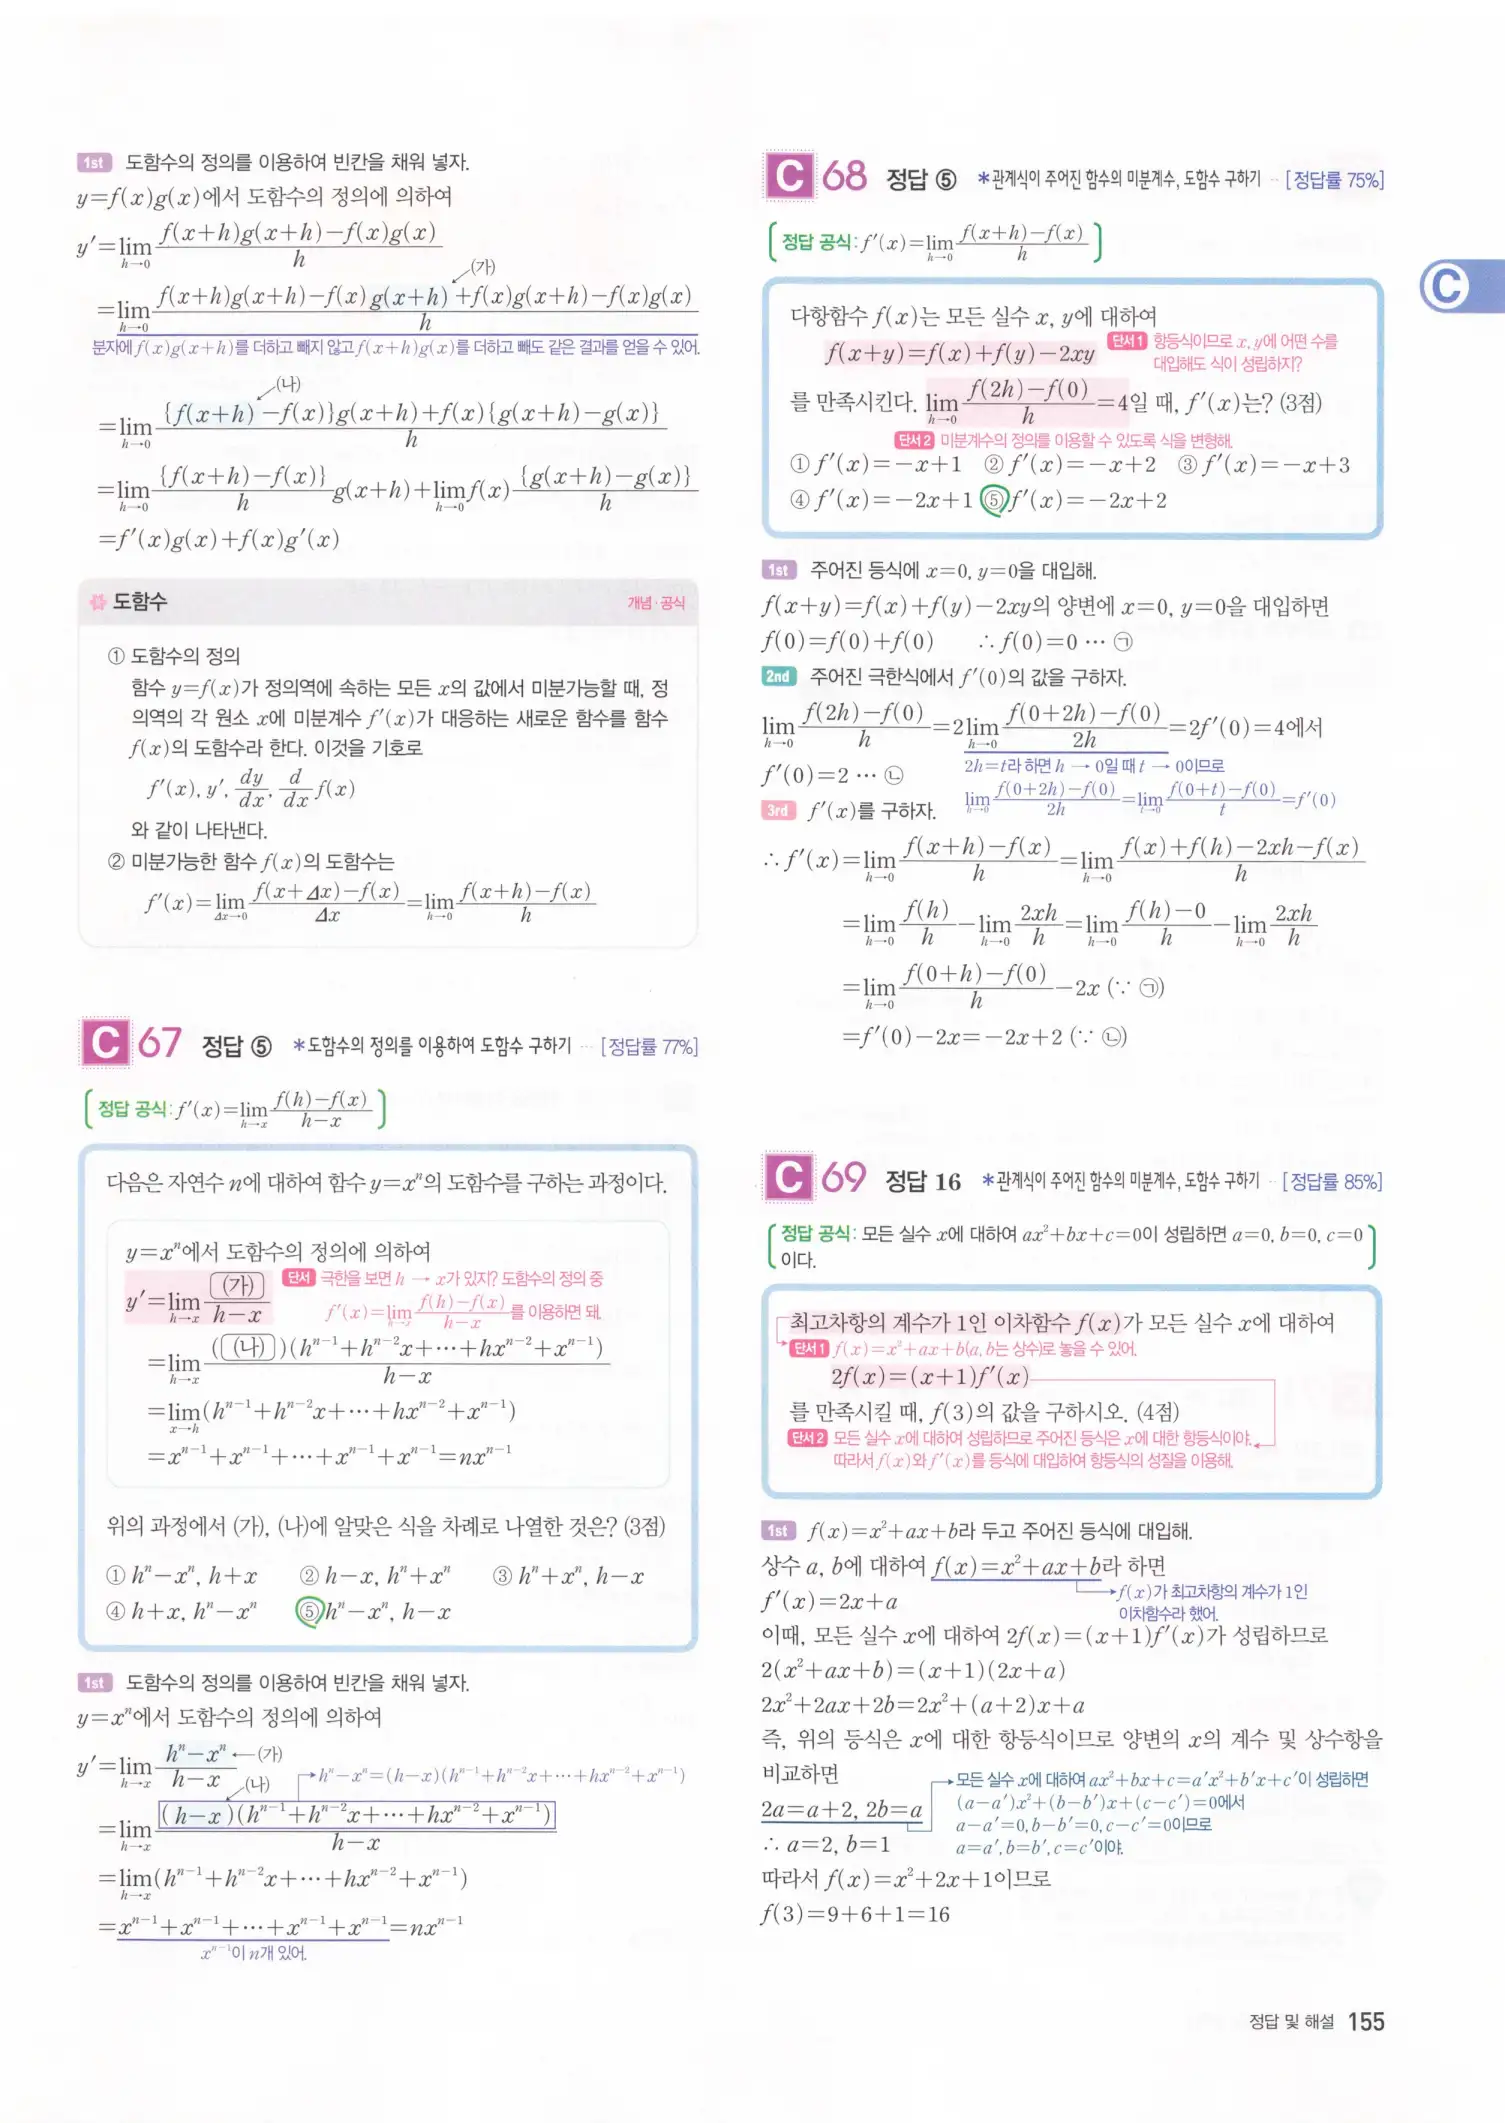 1st 도함수의 정의를 이용하여 빈칸을 채워 넣자.
y=f(x)g(x)에서 도함수의 정의에 의하여
y′=lim_{h→0} {f(x+h)g(x+h)−f(x)g(x)}/h
(가)
=lim_{h→0} {f(x+h)g(x+h)−f(x)g(x+h)+f(x)g(x+h)−f(x)g(x)}/h
분자에 f(x)g(x+h)를 더하고 빼지 않고 f(x+h)g(x)를 더하고 빼도 같은 결과를 얻을 수 있어.
(나)
=lim_{h→0} [{f(x+h)−f(x)}g(x+h)+f(x){g(x+h)−g(x)}]/h
=lim_{h→0} {f(x+h)−f(x)}/h g(x+h)+lim_{h→0} f(x) {g(x+h)−g(x)}/h
=f′(x)g(x)+f(x)g′(x)
도함수 개념·공식
① 도함수의 정의
함수 y=f(x)가 정의역에 속하는 모든 x의 값에서 미분가능할 때, 정
의역의 각 원소 x에 미분계수 f′(x)가 대응하는 새로운 함수를 함수
f(x)의 도함수라 한다. 이것을 기호로
f′(x), y′, dy/dx, d/dx f(x)
와 같이 나타낸다.
② 미분가능한 함수 f(x)의 도함수는
f′(x)=lim_{Δx→0} {f(x+Δx)−f(x)}/Δx=lim_{h→0} {f(x+h)−f(x)}/h
C 67 정답 ⑤ *도함수의 정의를 이용하여 도함수 구하기 ··· [정답률 77%]
정답 공식: f′(x)=lim_{h→x} {f(h)−f(x)}/(h−x)
다음은 자연수 n에 대하여 함수 y=xⁿ의 도함수를 구하는 과정이다.
y=xⁿ에서 도함수의 정의에 의하여
y′=lim_{h→x} (가)/(h−x)
단서 극한을 보면 h → x가 있지? 도함수의 정의 중
f′(x)=lim_{h→x} {f(h)−f(x)}/(h−x)를 이용하면 돼.
=lim_{h→x} {((나))(hⁿ⁻¹+hⁿ⁻²x+⋯+hxⁿ⁻²+xⁿ⁻¹)}/(h−x)
=lim_{x→h}(hⁿ⁻¹+hⁿ⁻²x+⋯+hxⁿ⁻²+xⁿ⁻¹)
=xⁿ⁻¹+xⁿ⁻¹+⋯+xⁿ⁻¹+xⁿ⁻¹=nxⁿ⁻¹
위의 과정에서 (가), (나)에 알맞은 식을 차례로 나열한 것은? (3점)
① hⁿ−xⁿ, h+x ② h−x, hⁿ+xⁿ ③ hⁿ+xⁿ, h−x
④ h+x, hⁿ−xⁿ ⑤ hⁿ−xⁿ, h−x
1st 도함수의 정의를 이용하여 빈칸을 채워 넣자.
y=xⁿ에서 도함수의 정의에 의하여
y′=lim_{h→x} (hⁿ−xⁿ)/(h−x) ←(가)
(나) → hⁿ−xⁿ=(h−x)(hⁿ⁻¹+hⁿ⁻²x+⋯+hxⁿ⁻²+xⁿ⁻¹)
=lim_{h→x} {(h−x)(hⁿ⁻¹+hⁿ⁻²x+⋯+hxⁿ⁻²+xⁿ⁻¹)}/(h−x)
=lim_{h→x}(hⁿ⁻¹+hⁿ⁻²x+⋯+hxⁿ⁻²+xⁿ⁻¹)
=xⁿ⁻¹+xⁿ⁻¹+⋯+xⁿ⁻¹+xⁿ⁻¹=nxⁿ⁻¹
xⁿ⁻¹이 n개 있어.
C 68 정답 ⑤ *관계식이 주어진 함수의 미분계수, 도함수 구하기 ·· [정답률 75%]
정답 공식: f′(x)=lim_{h→0} {f(x+h)−f(x)}/h
C
다항함수 f(x)는 모든 실수 x, y에 대하여
f(x+y)=f(x)+f(y)−2xy
단서1 항등식이므로 x, y에 어떤 수를
대입해도 식이 성립하지?
를 만족시킨다. lim_{h→0} {f(2h)−f(0)}/h=4일 때, f′(x)는? (3점)
단서2 미분계수의 정의를 이용할 수 있도록 식을 변형해.
① f′(x)=−x+1 ② f′(x)=−x+2 ③ f′(x)=−x+3
④ f′(x)=−2x+1 ⑤ f′(x)=−2x+2
1st 주어진 등식에 x=0, y=0을 대입해.
f(x+y)=f(x)+f(y)−2xy의 양변에 x=0, y=0을 대입하면
f(0)=f(0)+f(0) ∴ f(0)=0 ⋯ ㉠
2nd 주어진 극한식에서 f′(0)의 값을 구하자.
lim_{h→0} {f(2h)−f(0)}/h=2lim_{h→0} {f(0+2h)−f(0)}/2h=2f′(0)=4에서
f′(0)=2 ⋯ ㉡
2h=t라 하면 h → 0일 때 t → 0이므로
lim_{h→0} {f(0+2h)−f(0)}/2h=lim_{t→0} {f(0+t)−f(0)}/t=f′(0)
3rd f′(x)를 구하자.
∴ f′(x)=lim_{h→0} {f(x+h)−f(x)}/h=lim_{h→0} {f(x)+f(h)−2xh−f(x)}/h
=lim_{h→0} f(h)/h−lim_{h→0} 2xh/h=lim_{h→0} {f(h)−0}/h−lim_{h→0} 2xh/h
=lim_{h→0} {f(0+h)−f(0)}/h−2x (∵ ㉠)
=f′(0)−2x=−2x+2 (∵ ㉡)
C 69 정답 16 *관계식이 주어진 함수의 미분계수, 도함수 구하기 ·· [정답률 85%]
정답 공식: 모든 실수 x에 대하여 ax²+bx+c=0이 성립하면 a=0, b=0, c=0
이다.
최고차항의 계수가 1인 이차함수 f(x)가 모든 실수 x에 대하여
단서1 f(x)=x²+ax+b(a, b는 상수)로 놓을 수 있어.
2f(x)=(x+1)f′(x)
를 만족시킬 때, f(3)의 값을 구하시오. (4점)
단서2 모든 실수 x에 대하여 성립하므로 주어진 등식은 x에 대한 항등식이야.
따라서 f(x)와 f′(x)를 등식에 대입하여 항등식의 성질을 이용해.
1st f(x)=x²+ax+b라 두고 주어진 등식에 대입해.
상수 a, b에 대하여 f(x)=x²+ax+b라 하면
f′(x)=2x+a
f(x)가 최고차항의 계수가 1인
이차함수라 했어.
이때, 모든 실수 x에 대하여 2f(x)=(x+1)f′(x)가 성립하므로
2(x²+ax+b)=(x+1)(2x+a)
2x²+2ax+2b=2x²+(a+2)x+a
즉, 위의 등식은 x에 대한 항등식이므로 양변의 x의 계수 및 상수항을
비교하면
2a=a+2, 2b=a
∴ a=2, b=1
모든 실수 x에 대하여 ax²+bx+c=a′x²+b′x+c′이 성립하면
(a−a′)x²+(b−b′)x+(c−c′)=0에서
a−a′=0, b−b′=0, c−c′=0이므로
a=a′, b=b′, c=c′이야.
따라서 f(x)=x²+2x+1이므로
f(3)=9+6+1=16
정답 및 해설 155